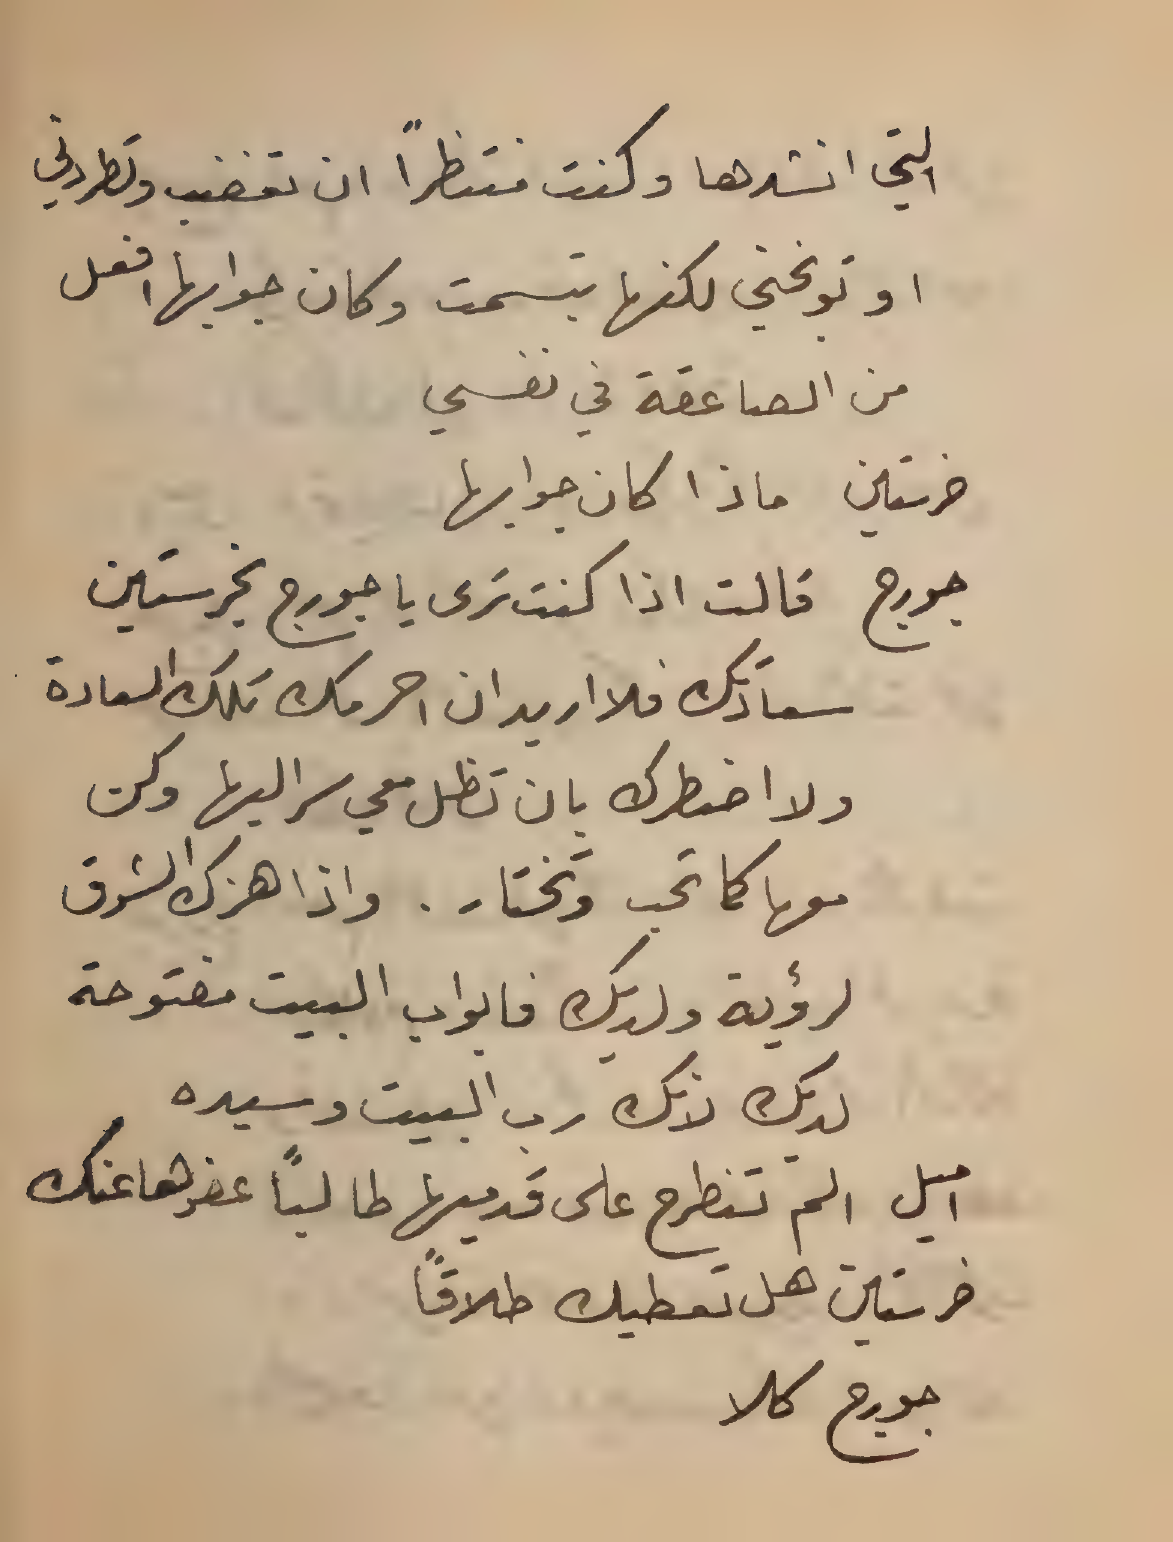 التي انشدها وكنت منتظراً ان تغضب وتطردني
او توبخني لكنها بتسمت وكان جوابها افعل
من الصاعقة في نفسي
خرستين ماذا كان جوابها
جورج قالت اذا كنت ترى يا جورج بخرستين
سعادتك فلا اريد ان احرمك تلك السعادة
ولا اضطرك بان تظل معي سر اليها وكن
معها كما تحب وتختار . واذا هزك الشوق
لرؤية ولديك فابواب البيت مفتوحة
لديك لانك رب البيت وسيده
اميل الم تنطرح على قدميها طالباً عفوها عنك
خرستين هل تعطيك طلاقاً
جورج كلا